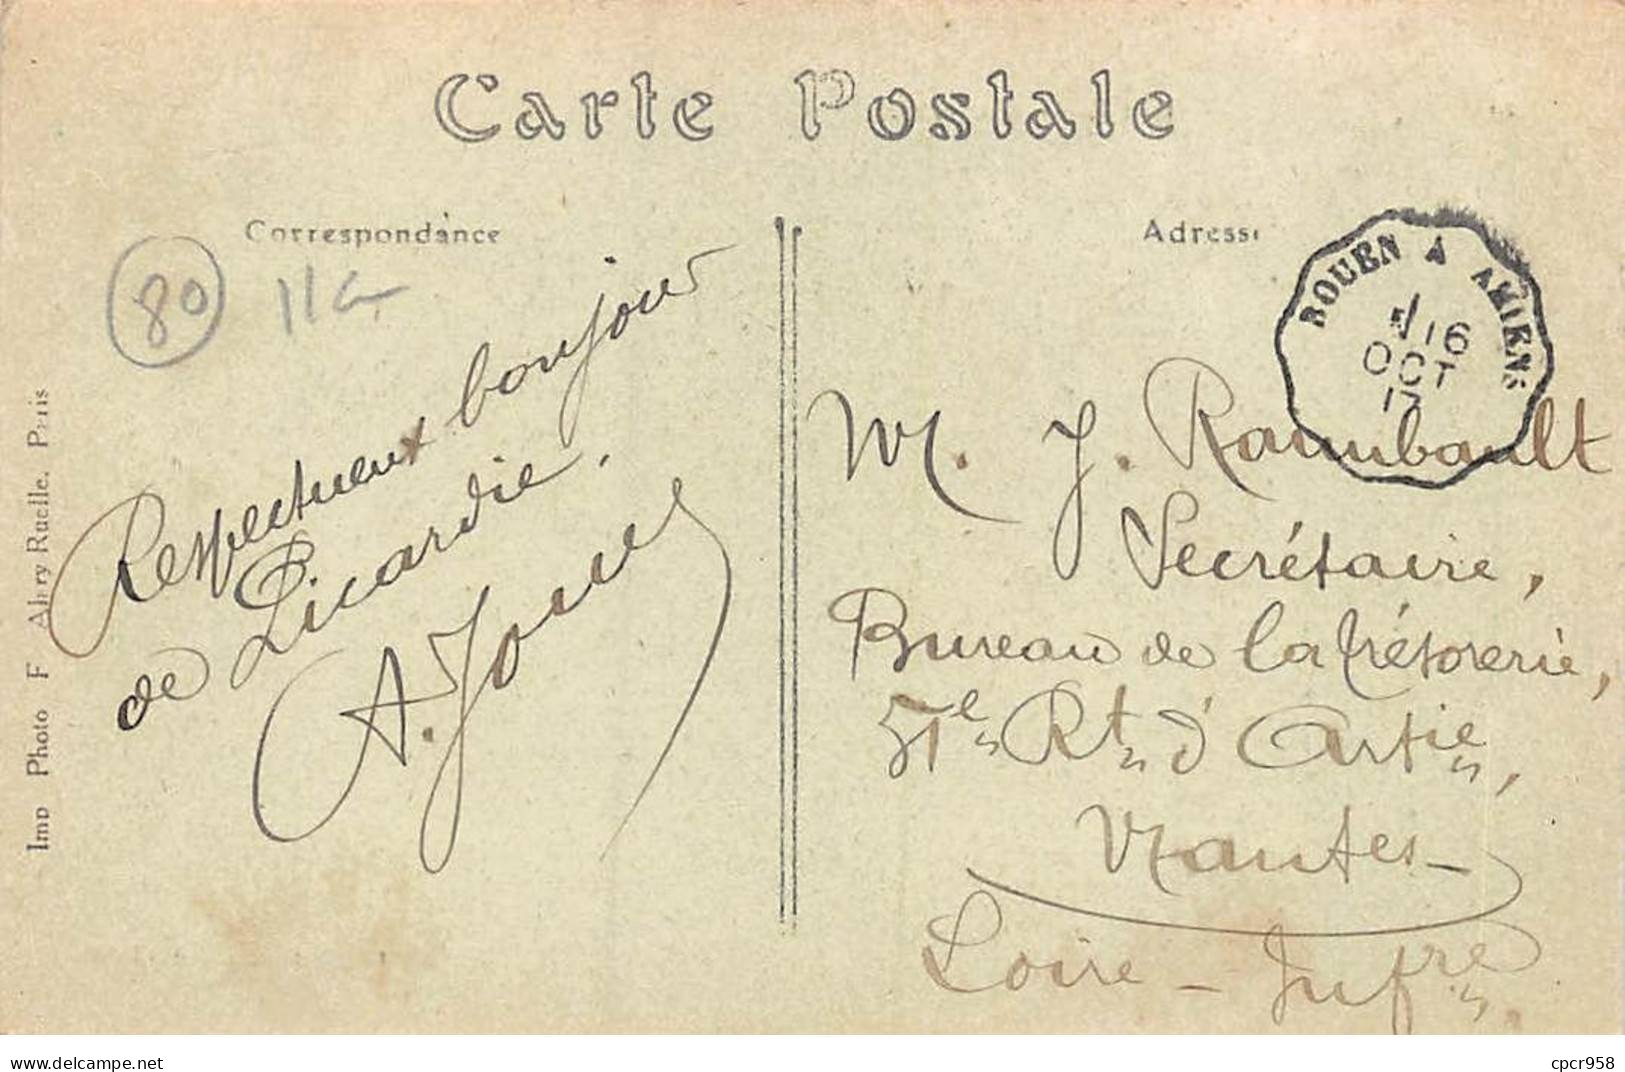 Carte Postale
Correspondance
Adresse
80
11G
ROUEN A AMIENS
16
OCT
17
Respectueux bonjour
de Picardie.
M. J. Rambault
Secrétaire,
Bureau de la trésorerie,
51e Rt d'Artie,
Nantes
Loire-Infre.
Imp Photo F Abry Ruelle. Paris
delcampe.net
cpcr958